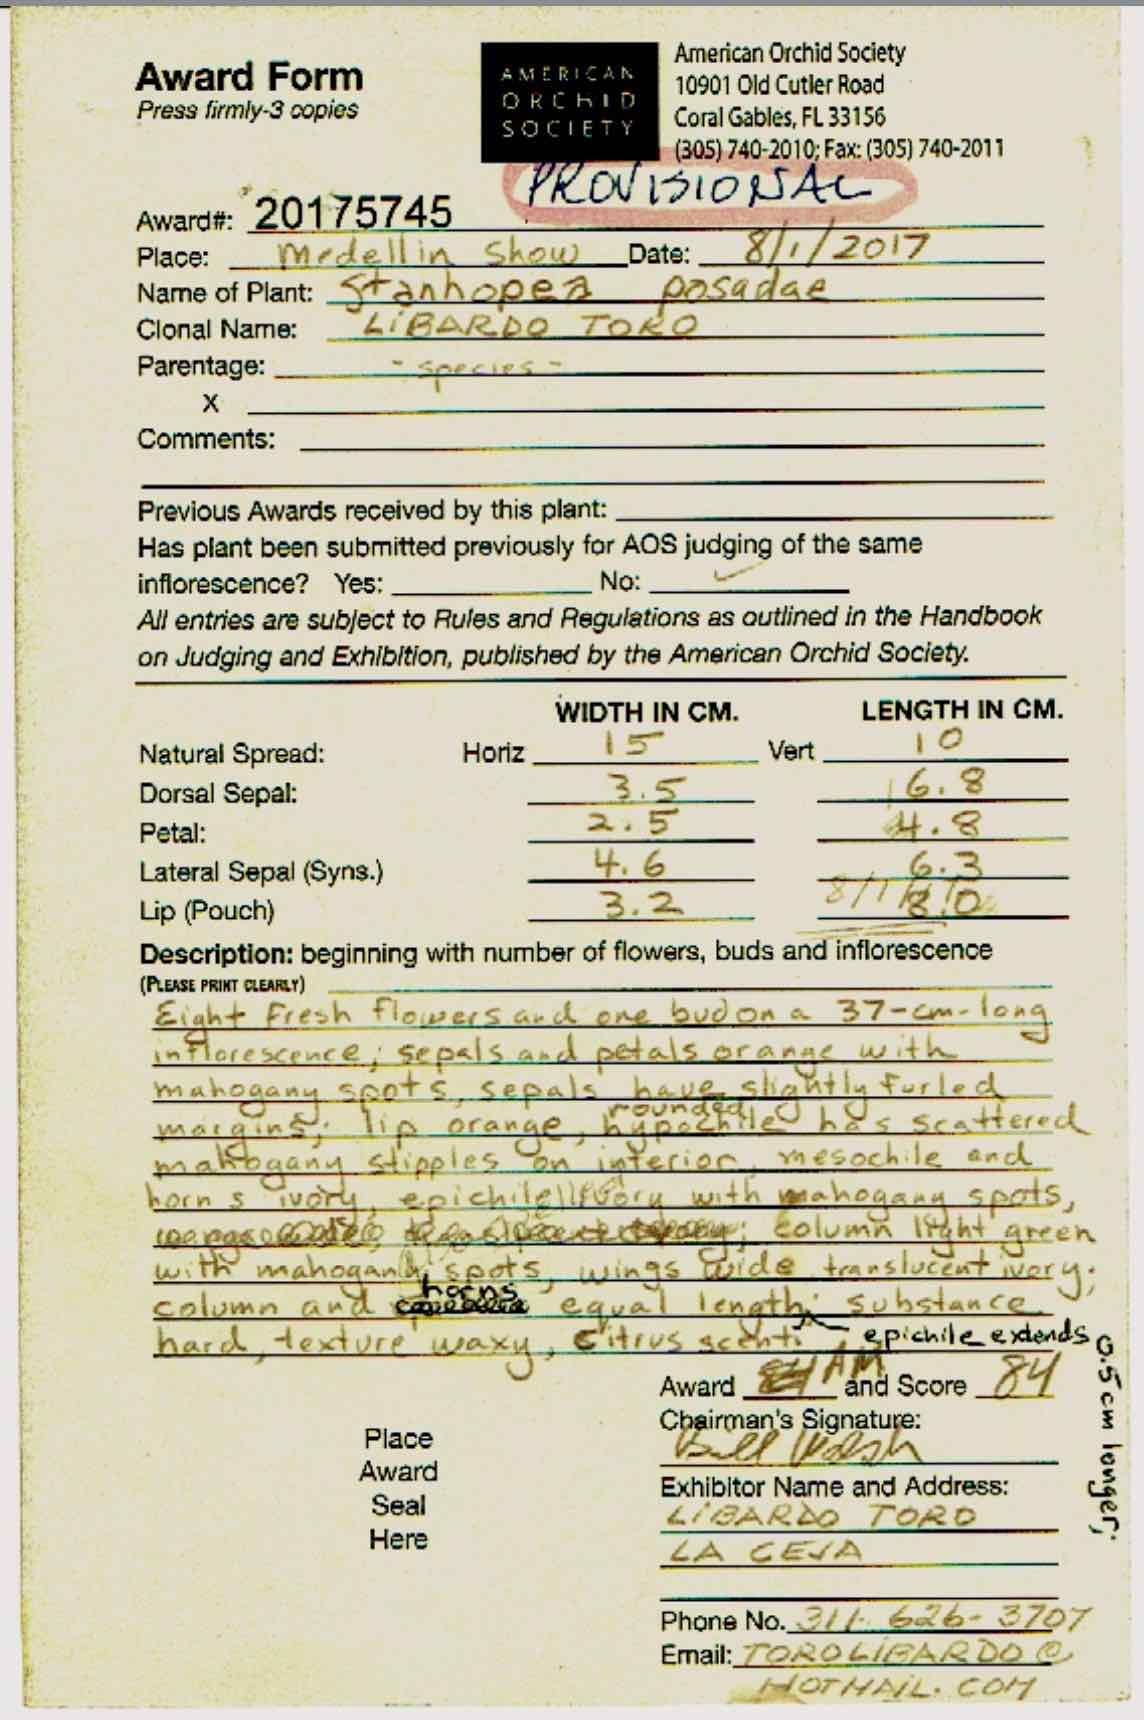 Award Form
Press firmly-3 copies
AMERICAN
ORCHID
SOCIETY
American Orchid Society
10901 Old Cutler Road
Coral Gables, FL 33156
(305) 740-2010; Fax: (305) 740-2011
PROVISIONAL
Award#: 20175745
Place: Medellin Show Date: 8/1/2017
Name of Plant: Stanhopea posadae
Clonal Name: LIBARDO TORO
Parentage: - species -
X
Comments:
Previous Awards received by this plant:
Has plant been submitted previously for AOS judging of the same
inflorescence? Yes: No: ✓
All entries are subject to Rules and Regulations as outlined in the Handbook
on Judging and Exhibition, published by the American Orchid Society.
WIDTH IN CM. LENGTH IN CM.
Natural Spread: Horiz 15 Vert 10
Dorsal Sepal: 3.5 6.8
Petal: 2.5 4.8
Lateral Sepal (Syns.) 4.6 6.3
Lip (Pouch) 3.2 8.0
Description: beginning with number of flowers, buds and inflorescence
(PLEASE PRINT CLEARLY)
Eight fresh flowers and one bud on a 37-cm-long
inflorescence; sepals and petals orange with
mahogany spots, sepals have slightly furled
margins; lip orange, rounded hypochile has scattered
mahogany stipples on interior, mesochile and
horns ivory, epichile ivory with mahogany spots,
column light green
with mahogany spots, wings wide translucent ivory;
column and horns equal length; substance
hard, texture waxy, citrus scent.
epichile extends
0.5 cm longer;
Award AM and Score 84
Chairman's Signature:
Bill Walsh
Place
Award
Seal
Here
Exhibitor Name and Address:
LIBARDO TORO
LA CEJA
Phone No. 311-626-3707
Email: TOROLIBARDO@
HOTMAIL.COM